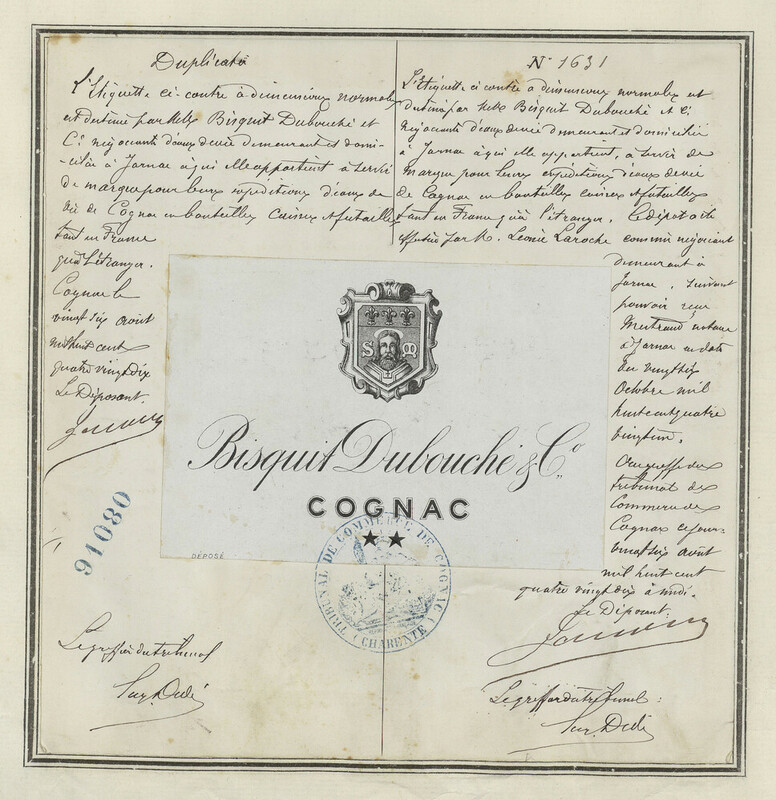 Duplicata
L'Etiquette ci-contre à dimensions normales
est destinée par MM. Bisquit Dubouché et
Cⁱᵉ négociants d'eaux de vie demeurant et domi-
-ciliés à Jarnac à qui elle appartient à servir
de marque pour leurs expéditions d'eaux de
vie de Cognac en bouteilles caisses et futailles
tant en France
qu'à l'étranger.
Cognac le
vingt six août
mil huit cent
quatre vingt dix
Le Déposant.
91080
Le greffier du tribunal
N° 1631
L'étiquette ci contre a dimensions normales est
destinée par MM. Bisquit Dubouché et Cⁱᵉ
négociants d'eaux de vie demeurant et domiciliés
à Jarnac à qui elle appartient, à servir de
marque pour leurs expéditions d'eaux de vie
de Cognac en bouteilles caisses et futailles
tant en France qu'à l'étranger. Ce dépôt a été
effectué par M. Léonce Laroche commis négociant
demeurant à
Jarnac, suivant
pouvoir reçu
notaire
à Jarnac en date
du vingt six
Octobre mil
huit cent quatre
vingt un.
Au greffe du
tribunal de
Commerce de
Cognac ce jour
vingt six août
mil huit cent
quatre vingt dix à midi.
Le Déposant:
Le greffier du tribunal:
S Q
Bisquit Dubouché & Cº
COGNAC
★★
DÉPOSÉ
TRIBUNAL DE COMMERCE DE COGNAC
(CHARENTE)